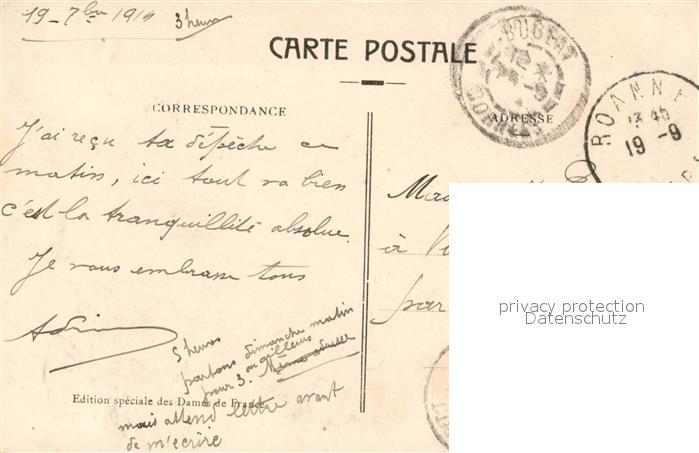 19-7bre 1914 3 heures
CARTE POSTALE
CORRESPONDANCE
ADRESSE
BUGEAT
CORREZE
ROANNE
13 45
19-9
J'ai reçu ta dépêche ce
matin, ici tout va bien
c'est la tranquillité absolue.
Je vous embrasse tous
5 heures
partons dimanche matin
ou ailleurs
pour 3. Même adresse
mais attend lettre avant
de m'écrire
Edition spéciale des Dames de France
à
par
privacy protection
Datenschutz